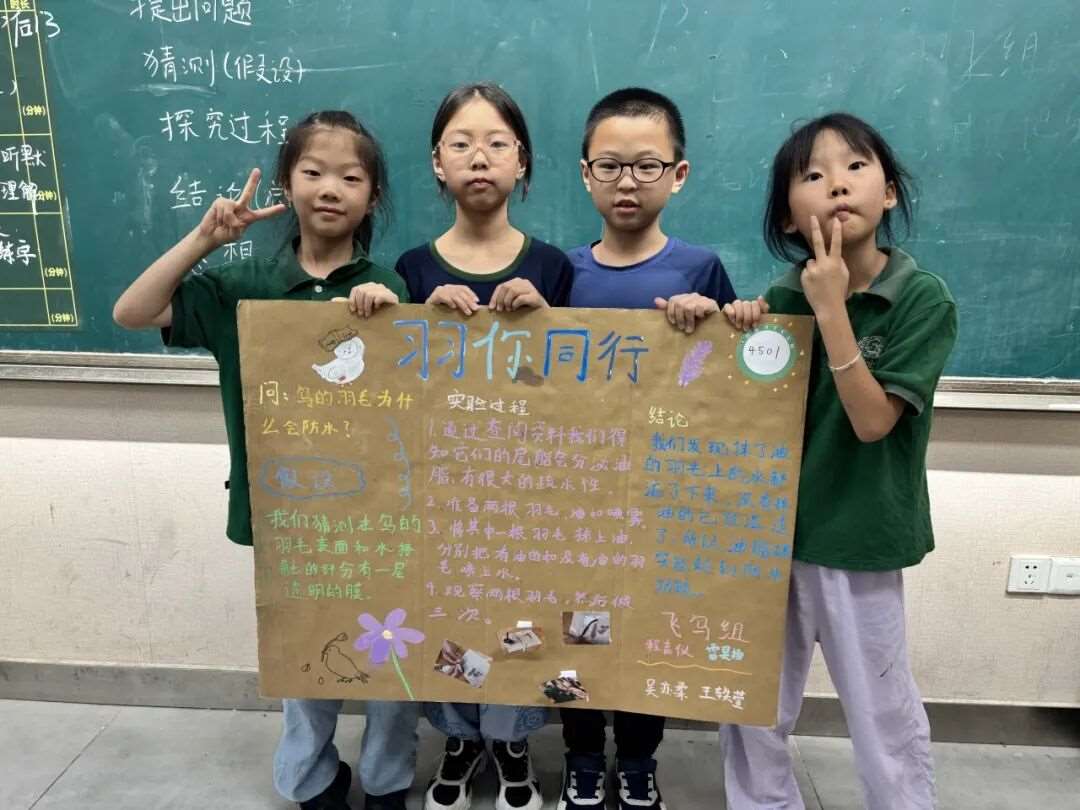 提出问题
猜测(假设)
探究过程
结论
想
后门
(分钟)
听默
理解(分钟)
练字
(分钟)
(分钟)
羽你同行
4501
问:鸟的羽毛为什
么会防水?
假设
我们猜测在鸟的
羽毛表面和水接
触的部分有一层
透明的膜。
实验过程
1.通过查阅资料我们得
知它们的尾脂会分泌油
脂,有很大的疏水性。
2.准备两根羽毛,油和喷雾。
3.将其中一根羽毛抹上油,
分别把有油的和没有油的羽
毛喷上水。
4.观察两根羽毛,然后做
三次。
结论
我们发现抹了油
的羽毛上的水都
流了下来,没有抹
油的已
了,所以,油脂
防水
飞鸟组
程言仪
吴亦柔